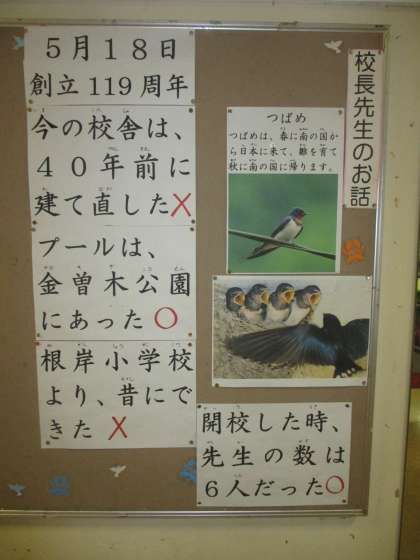 校長先生のお話
つばめ
つばめは、春に南の国か
ら日本に来て、雛を育て
秋に南の国に帰ります。
開校した時、
先生の数は
6人だった○
5月18日
創立119周年
今の校舎は、
40年前に
建て直した×
プールは、
金曽木公園
にあった○
根岸小学校
より、昔にで
きた ×